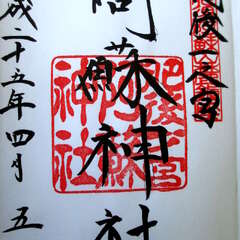 肥後一之宮
阿蘓神社
成二十五年四月五
肥後一宮
阿蘇
神社